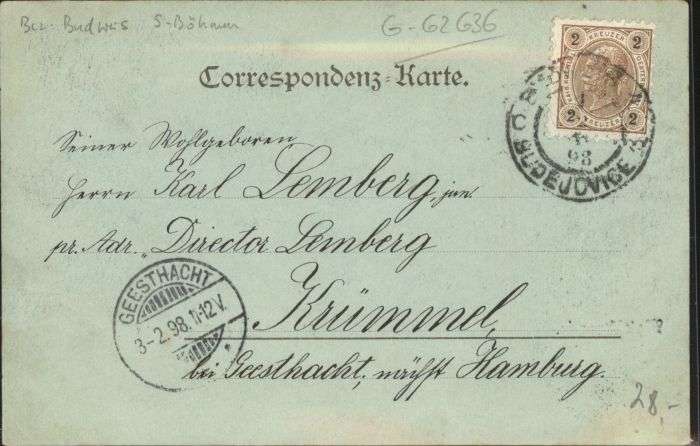 Bez. Budweis S-Böhmen
G-G2G36
2 KREUZER 2
2 KREUZER 2
Correspondenz-Karte.
BUDĚJOVICE
98
Seiner Wohlgeboren
Herrn Karl Lemberg, jun.
pr. Adr. „Director Lemberg
GEESTHACHT
3-2.98.11-12V.
Krümmel
bei Geesthacht, nächst Hamburg.
28,-